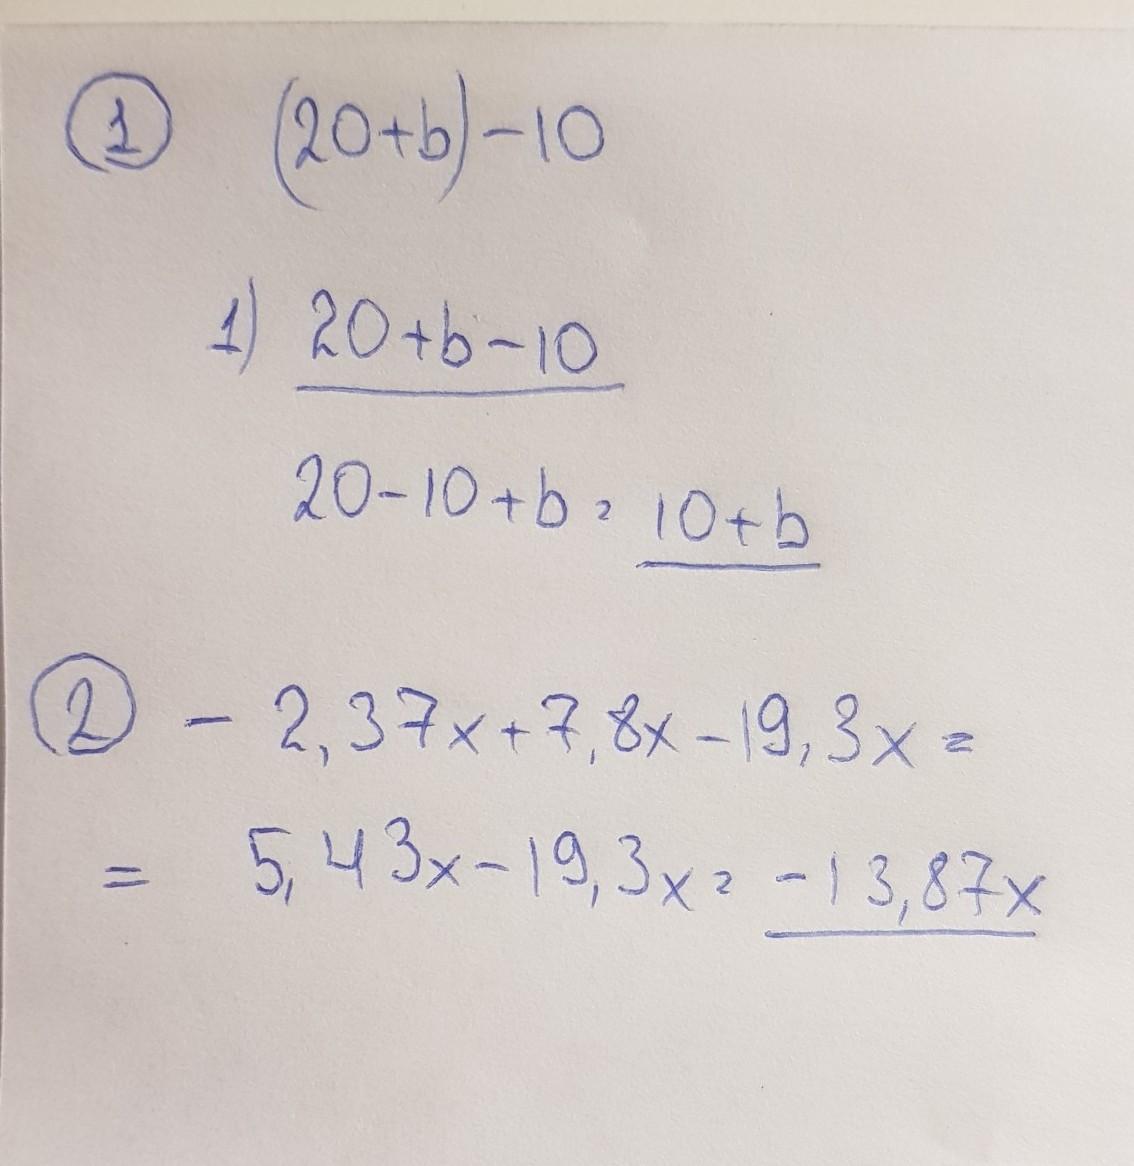 1 (20+b)-10
1) 20+b-10
20-10+b = 10+b
2 - 2,37x+7,8x-19,3x =
= 5,43x-19,3x = -13,87x